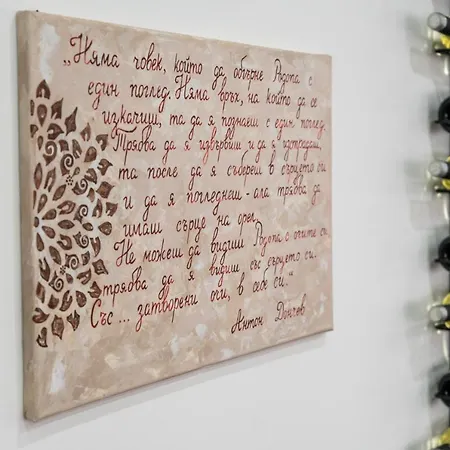 „Няма човек, който да обгърне Родопа с
един поглед. Няма връх, на който да се
изкачиш, та да я познаеш с един поглед.
Трябва да я извървиш и да я изстрадаш,
та после да я събереш в сърцето си
и да я погледнеш - ала трябва да
имаш сърце на орел.
Не можеш да видиш Родопа с очите си.
трябва да я видиш със сърцето си.
Със... затворени очи, в себе си."
Антон Дончев